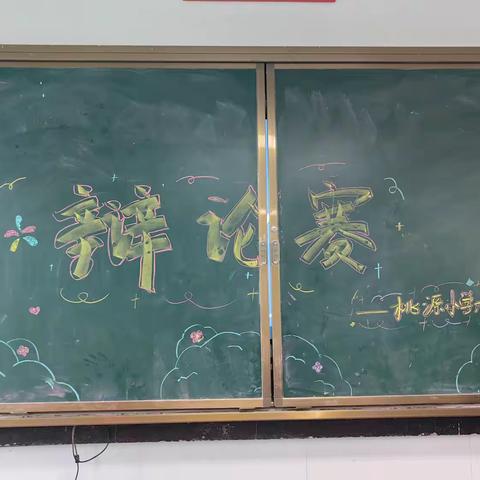 辩论赛
——桃源小学